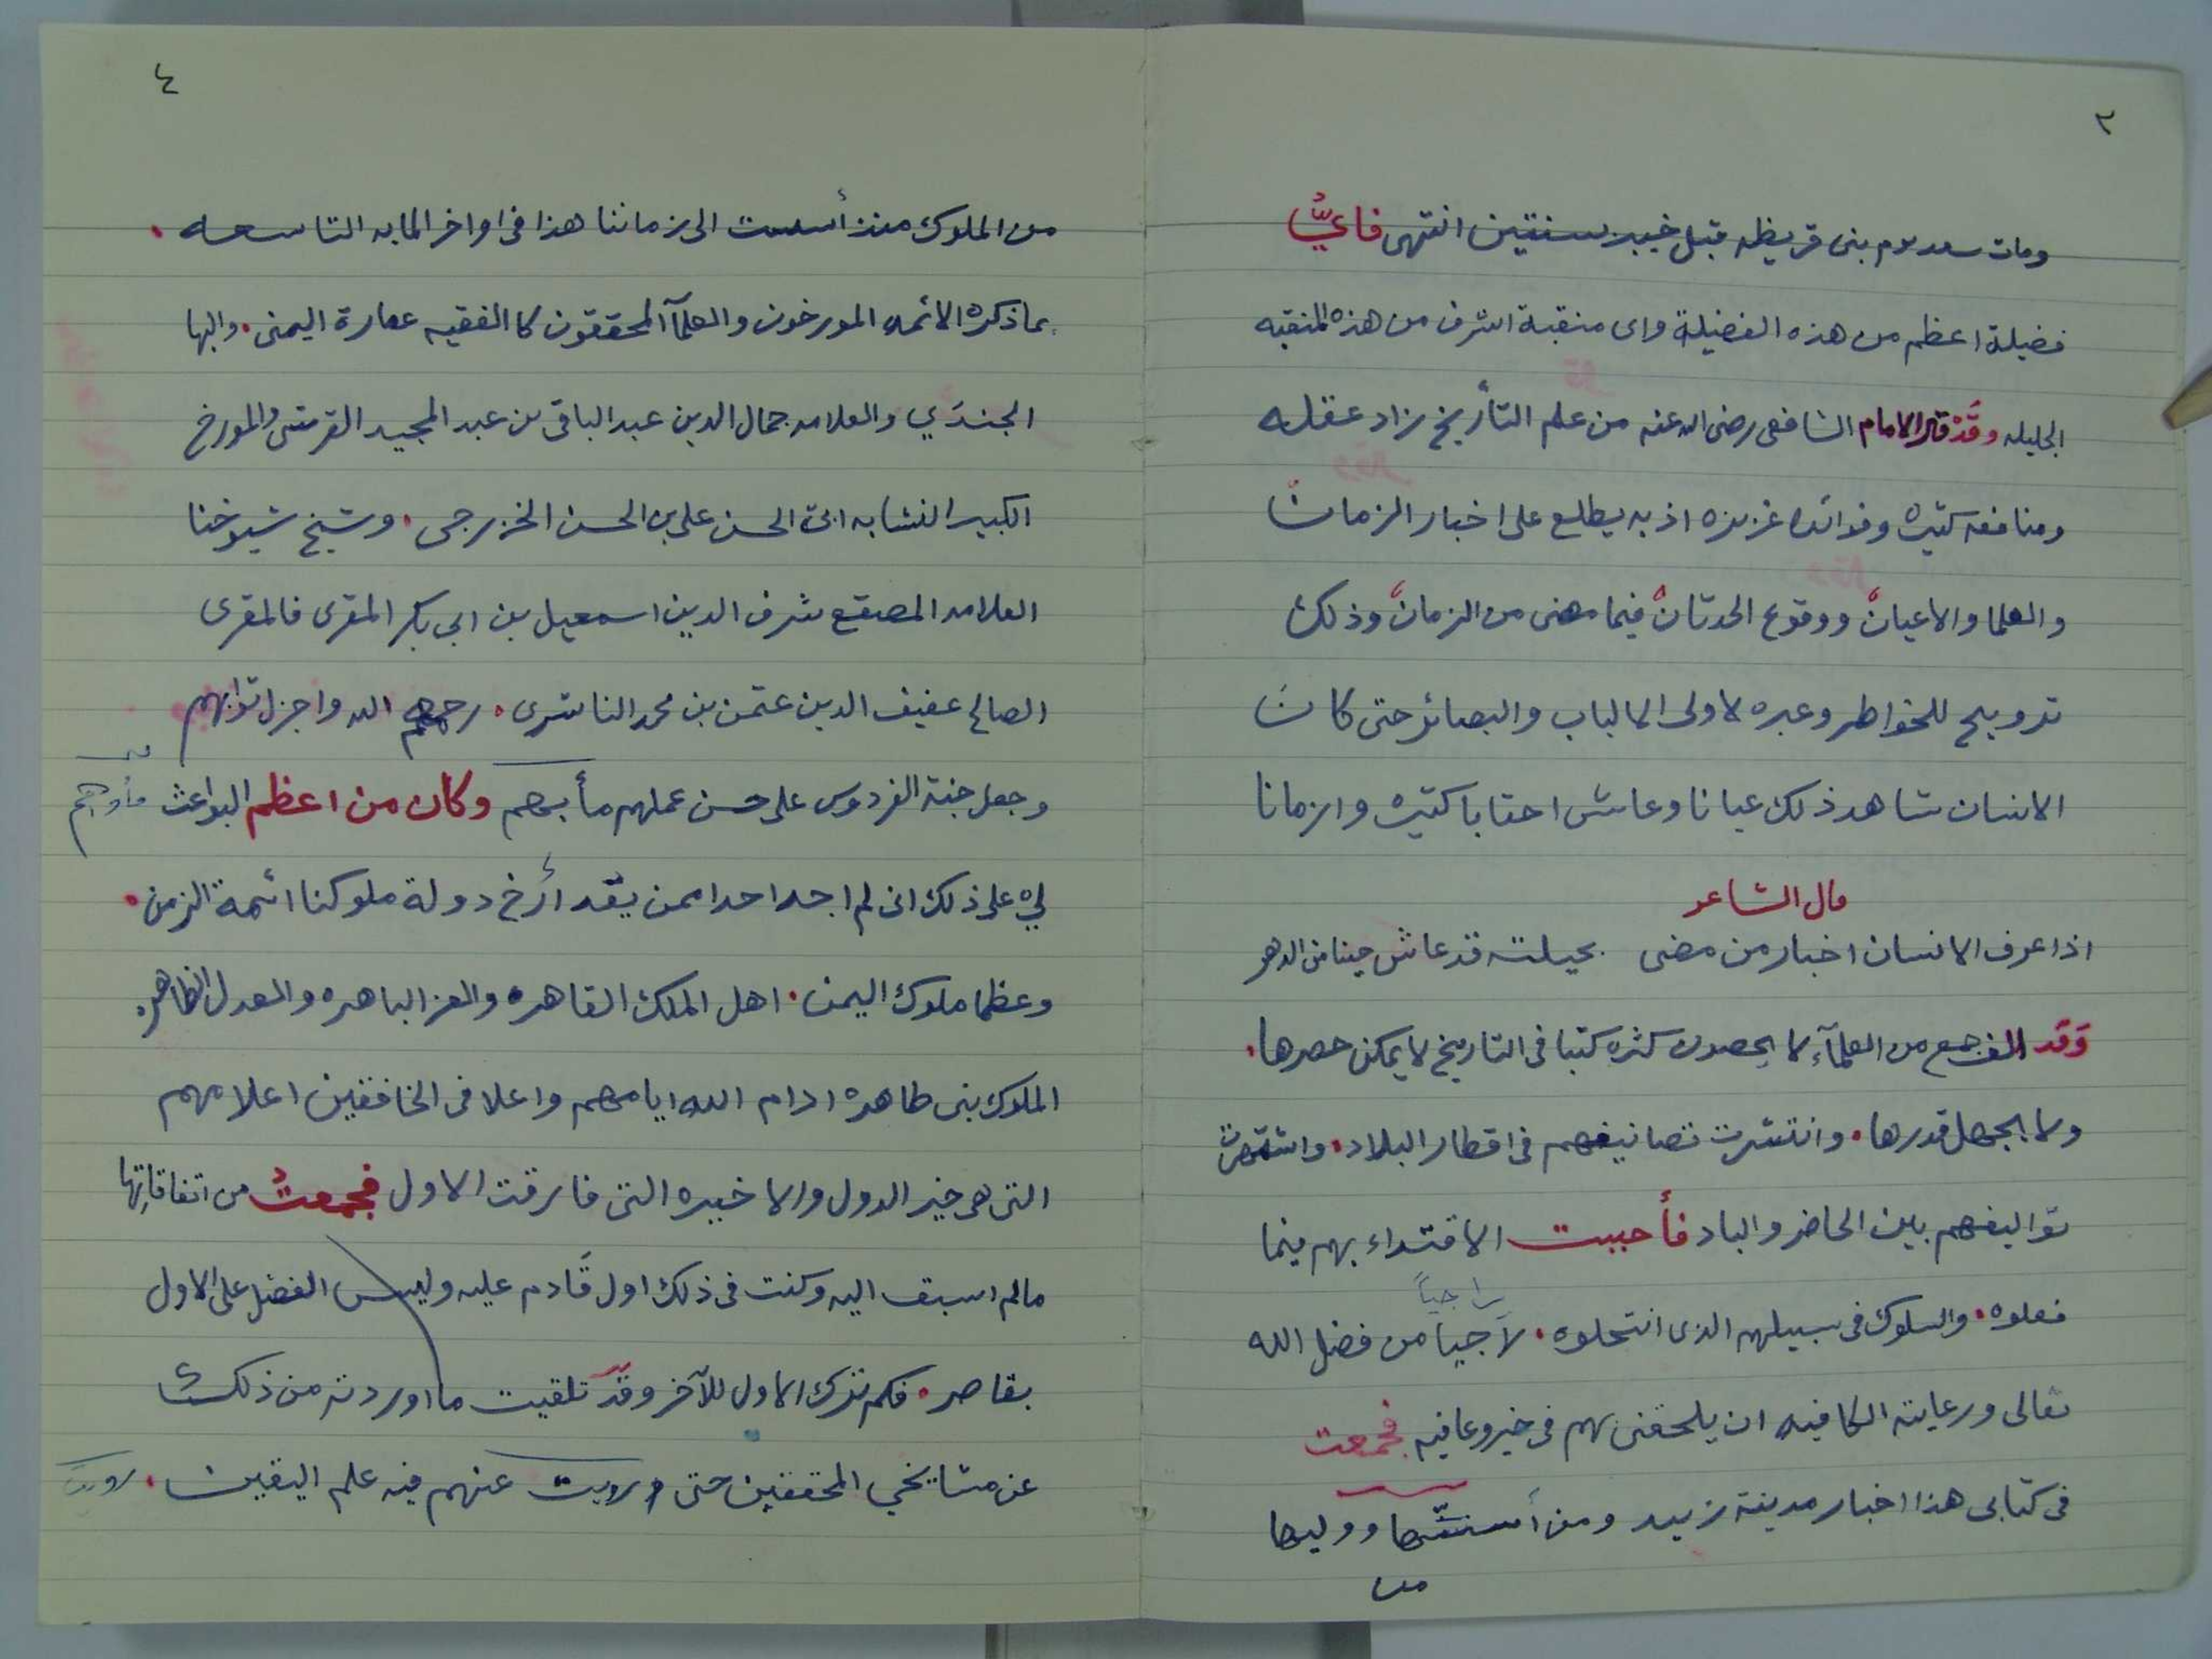 ٣
ومات سعد يوم بنى قريظه قبل خيبر بسنتين انتهى فايُّ
فضيلة اعظم من هذه الفضيلة واى منقبة اشرف من هذه المنقبه
الجليله وقَدْ قال الامام الشافعى رضى الله عنه من علم التأريخ زاد عقله
ومنافعه كثيره وفوائده غزيزه اذ به يطلع على اخبار الزمان
والعلما والاعيان ووقوع الحدثان فيما مضى من الزمان وذلك
ترويح للخواطر وعبره لاولى الالباب والبصائر حتى كان
الانسان شاهد ذلك عيانا وعاش احقابا كثيره وازمانا
قال الشاعر
اذا عرف الانسان اخبار من مضى بحيلته قد عاش حينا من الدهر
وَقَد الف جمع من العلمآء لا يحصون كثره كتبا فى التاريخ لا يمكن حصرها.
ولا يجهل قدرها. وانتشرت تصانيفهم فى اقطار البلاد. واشتهرت
تواليفهم بين الحاضر والباد فأحببت الاقتداء بهم فيما
راجياً
فعلوه. والسلوك فى سبيلهم الذى انتحلوه. لاَجياً من فضل الله
تعالى ورعايته الكافيه ان يلحقنى بهم فى خير وعافيه فجمعت
فى كتابى هذا اخبار مدينة زبيد ومن أسسّها ووليها
من
٤
من الملوك منذ أسست الى زماننا هذا فى اواخر المايه التاسعه.
بما ذكره الائمه المورخون والعلمآ المحققون كا الفقيه عمارة اليمنى. والبها
الجندَي والعلامه جمال الدين عبد الباقى بن عبد المجيد القرشى والمورخ
الكبير النشابه ابى الحسن على بن الحسن الخزرجى. وشيخ شيوخنا
العلامه المصقع شرف الدين اسمعيل بن ابى بكر المقرى فالمقرى
الصالح عفيف الدين عثمن بن محمد الناشرى. رحمهم الله واجزل ثوابهم
وجعل جنة الفردوس على حسن عملهم مأبهم وكان من اعظم البواعث مأواهم
لي على ذلك انى لم اجد احدا ممن يقد أرخ دولة ملوكنا ائمة الزمن.
وعظما ملوك اليمن. اهل الملك القاهره والعز الباهره والعدل الظاهره
الملوك بنى طاهره ادام الله ايامهم واعلا فى الخافقين اعلامهم
التى هى خير الدول والاخيره التى فارقت الاول فجمعتُ من اتفاقاتِها
مالم اسبق اليه وكنت فى ذلك اول قَادم عليه وليس الفضل على الاول
بقاصر. فكم ترك الاول للآخر وقَد تلقيت ما اوردته من ذلك
عن مشايخي المحققين حتى رويت عنهم فيه علم اليقين. رويت